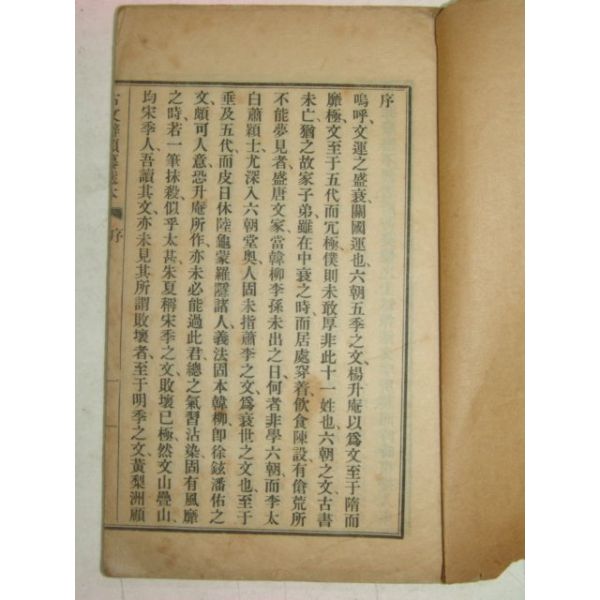 序
嗚呼、文運之盛衰、關國運也、六朝五季之文、楊升庵以爲文至于隋而
靡極、文至于五代而冗極、僕則未敢厚非此十一姓也、六朝之文、古書
未亡、猶之故家子弟、雖在中衰之時、而居處穿着、飲食陳設、有傖荒所
不能夢見者、盛唐文家、當韓柳李孫未出之日、何者非學六朝、而李太
白蕭穎士、尤深入六朝堂奥、人固未指蕭李之文、爲衰世之文也、至于
垂及五代、而皮日休陸龜蒙羅隱諸人、義法固本韓柳、即徐鉉潘佑之
文、頗可人意、恐升庵所作、亦未必能過此君、總之氣習沾染、固有風靡
之時、若一筆抹殺、似乎太甚、朱夏稱宋季之文、敗壞已極、然文山疊山、
均宋季人、吾讀其文、亦未見其所謂敗壞者、至于明季之文、黃梨洲顧
古文辭類纂選本
序
一